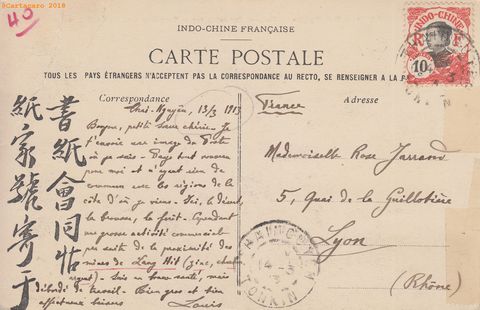 ©Cartacaro 2018
40
INDO-CHINE FRANÇAISE
CARTE POSTALE
TOUS LES PAYS ÉTRANGERS N'ACCEPTENT PAS LA CORRESPONDANCE AU RECTO, SE RENSEIGNER A LA
INDO-CHINE
10
Correspondance
Adresse
Thaï-Nguyên, 13/3 1913
Bonjour, petite sœur chérie. Je
t'envoie une image du Poste
où je suis. Pays tout nouveau
pour moi et n'ayant rien de
commun avec les régions de la
côte d'où je viens. Ici, le désert,
la brousse, la forêt. Cependant
une grosse activité commerciale
par suite de la proximité des
mines de Lang Hit (zinc,
argent). Suis en bonne santé, mais
débordé de travail. Bien gros et bien
affectueux baisers
Louis
書紙會同帖
紙家號寄于
France
Mademoiselle Rose Jarrand
5, Quai de la Guillotière
Lyon
(Rhône)
TONKIN